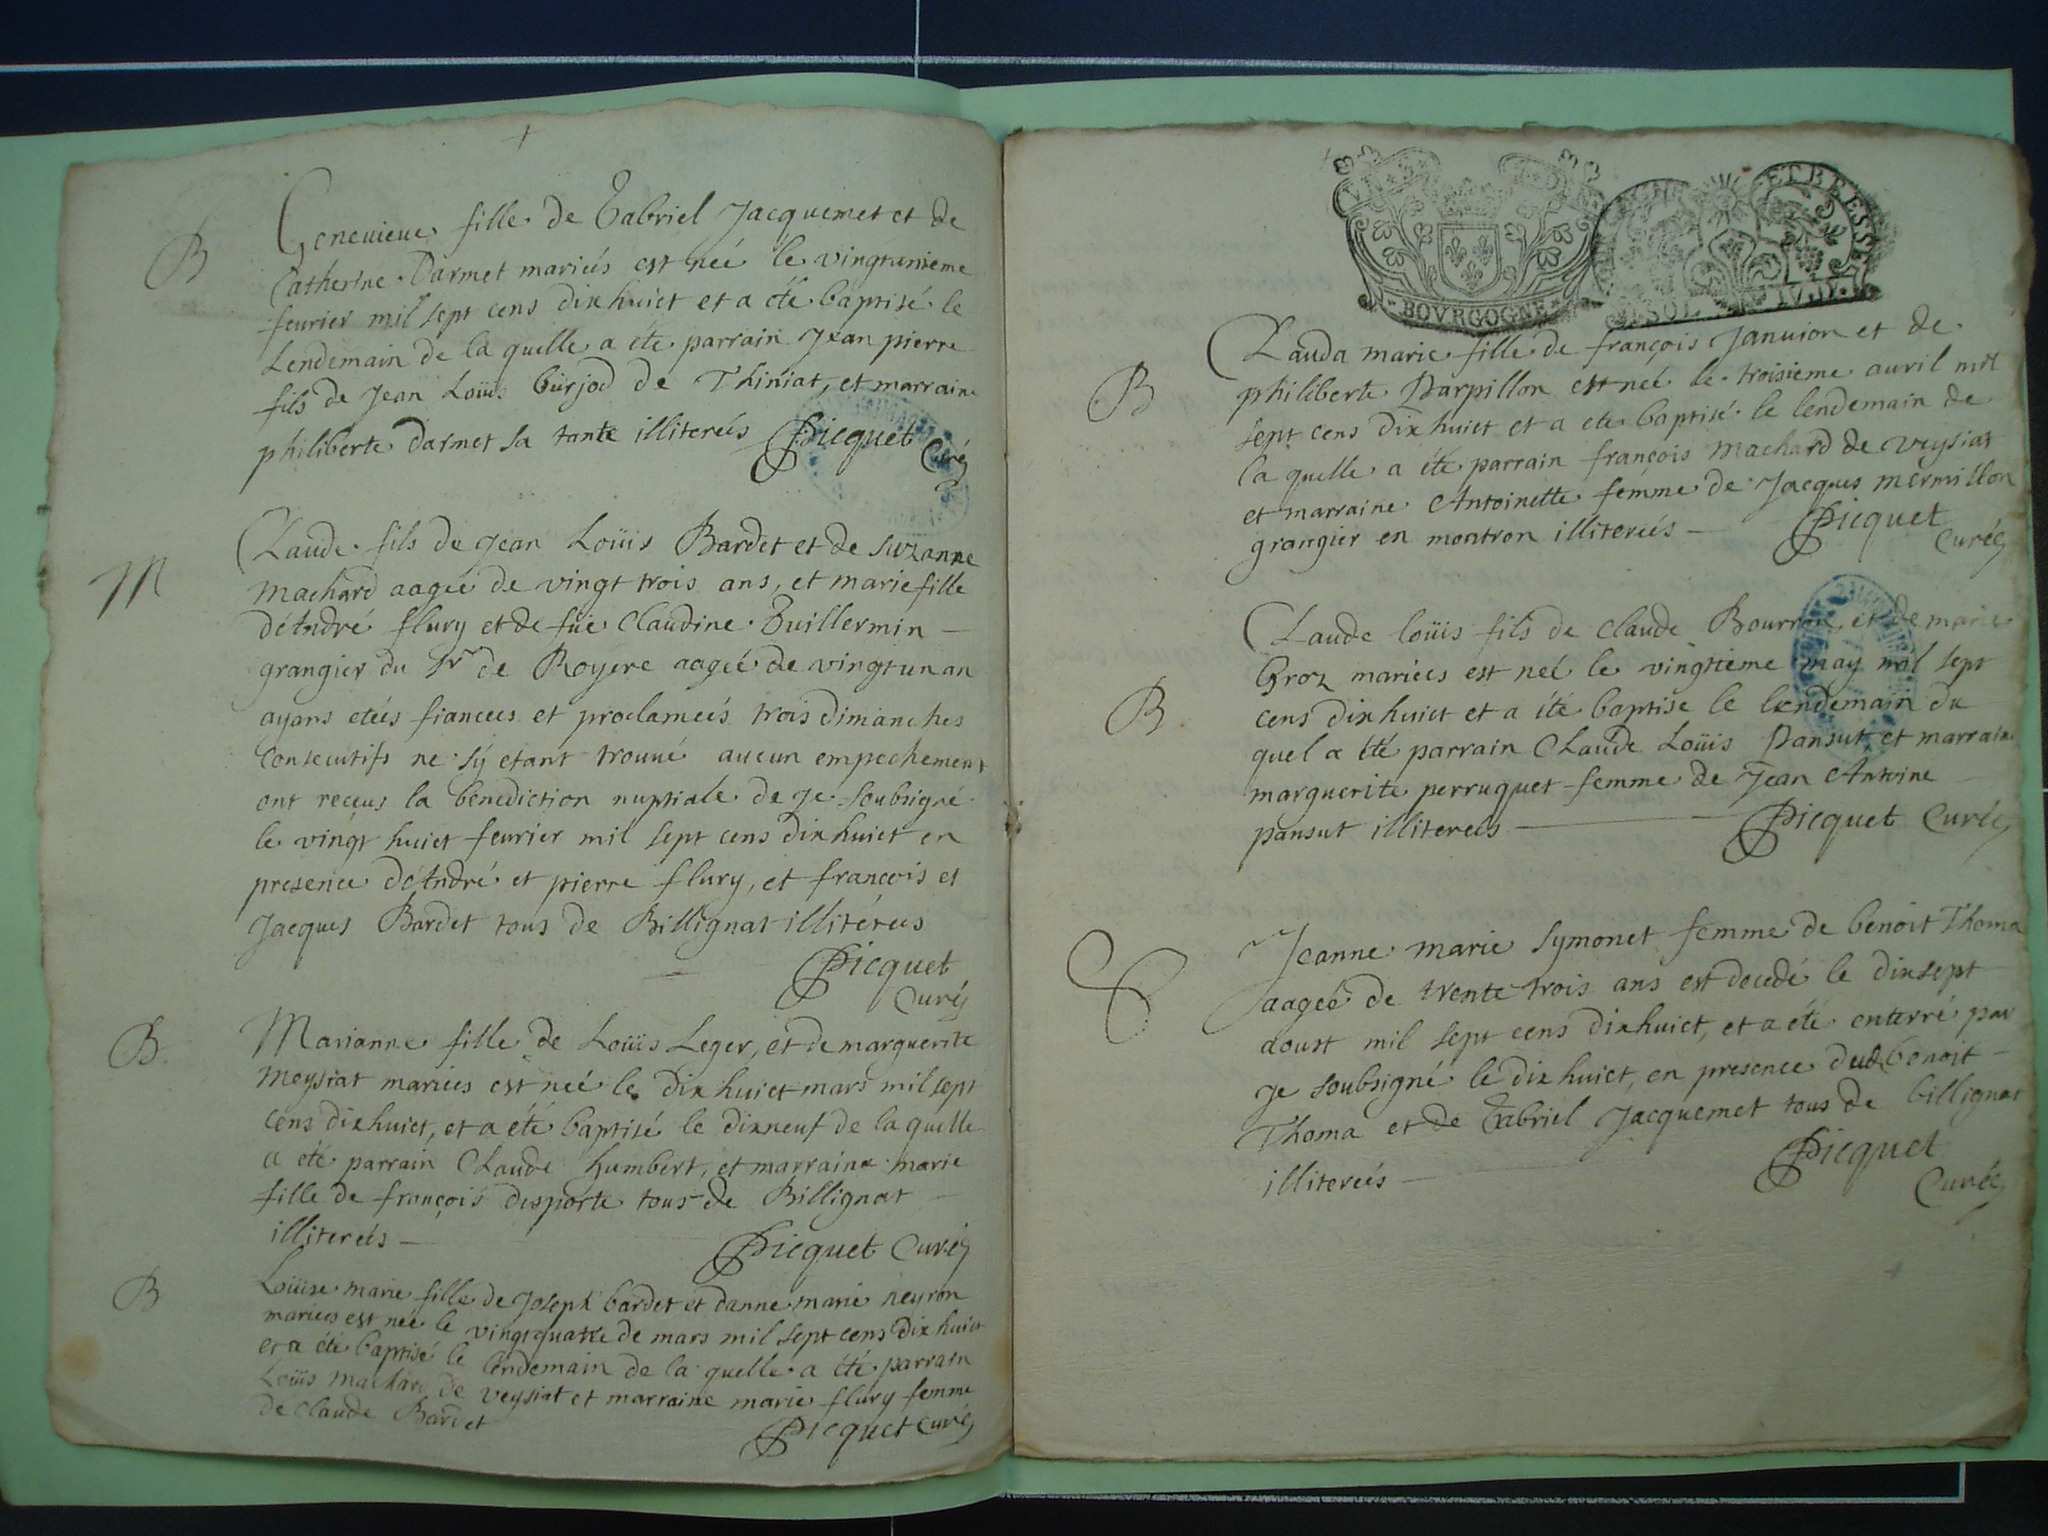 B
Genevieve fille de Gabriel Jacquemet et de
Catherine Darmet mariés est née le vingtunieme
fevrier mil sept cens dixhuict et a été baptisé le
Lendemain de la quelle a été parrain Jean pierre
fils de Jean Loüis burjod de Thiniat, et marraine
philiberte Darmet sa tante illitereés Picquet
Curé
M
Claude fils de Jean Loüis Bardet et de Suzanne
Machard aagée de vingt trois ans, et marie fille
d'André flury et de füe Claudine Guillermin
grangier du Sr de Royere aagée de vingt un an
ayans etées fiancees et proclameés trois dimanches
consecutifs ne sÿ etant trouvé aucun empechement
ont receus la benediction nuptiale de Je soubsigné
le vingt huict fevrier mil sept cens dixhuict en
presence d'André et pierre flury, et françois et
Jacques Bardet tous de Billignat illitérées
Picquet
Curé
B.
Marianne fille de Loüis Leger, et de marguerite
Meysiat mariées est née le dixhuict mars mil sept
cens dixhuict, et a été baptisé le dixneuf de la quelle
a été parrain Claude humbert, et marraine marie
fille de françois desporte tous de Billignat
illitereés
Picquet Curé
B
Loüise marie fille de Joseph bardet et d'anne marie neyron
mariées est née le vingtquatre de mars mil sept cens dixhuict
et a été baptisé le lendemain de la quelle a été parrain
Loüis machard de veysiat et marraine marie flury femme
de Claude Bardet
Picquet Curé
BOVRGOGNE
ET BRESSE
SOL
IV.D.
B
Clauda marie fille de françois Januion et de
philiberte Darpillon est née le troisieme auril mil
sept cens dixhuict et a ete baptisé le lendemain de
la quelle a été parrain françois machard de veysiat
et marraine Antoinette femme de Jacques mermillon
grangier en montron illitereés Picquet
Curé
B
Claude loüis fils de claude et de marie
Groz mariées est né le vingtieme may mil sept
cens dixhuict et a été baptise le lendemain du
quel a été parrain Claude Loüis Pansut, et marraine
marguerite perruquet femme de Jean Antoine
pansut illitereés Picquet Curé
Jeanne marie Symonet femme de benoit Thoma
aageé de trente trois ans est decedé le dixsept
aoust mil sept cens dixhuict, et a été enterré par
je soubsigné le dixhuict, en presence dud. benoit
Thoma et de Gabriel Jacquemet tous de billignat
illitereés Picquet
Curé